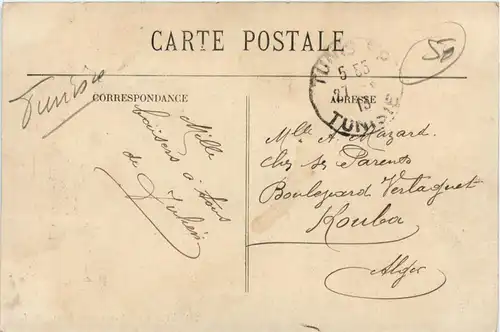 CARTE POSTALE
50
Tunisie
TUNIS
5-55
27
13
TUNISIE
CORRESPONDANCE
ADRESSE
Mille
baisers à tous
de Julien
Mlle A. Mazart
chez ses Parents
Boulevard Verlaquet
Kouba
Alger